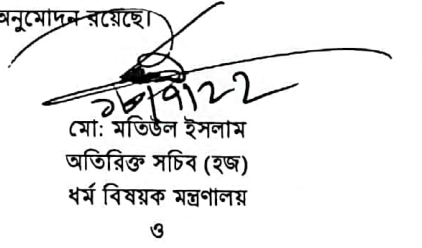 অনুমোদন রয়েছে।
মো: মতিউল ইসলাম
অতিরিক্ত সচিব (হজ)
ধর্ম বিষয়ক মন্ত্রণালয়
ও